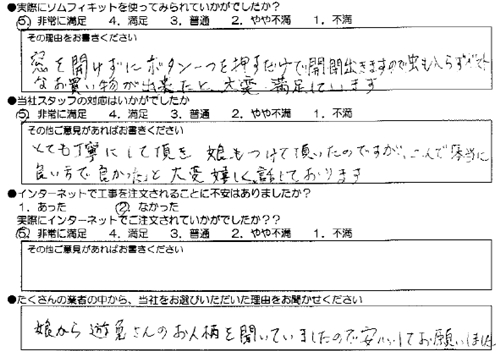 ●実際にソムフィキットを使ってみられていかがでしたか?
5. 非常に満足 4. 満足 3. 普通 2. やや不満 1. 不満
その理由をお書きください
窓を開けずにボタン一つを押すだけで開閉出きますので虫も入らずベスト
なお買い物が出来たと、大変満足しています
●当社スタッフの対応はいかがでしたか
5. 非常に満足 4. 満足 3. 普通 2. やや不満 1. 不満
その他ご意見があればお書きください
とても丁寧にして頂き 娘もつけて頂いたのですが、 本当に
良い方で良かった」と大変嬉しく話しております
●インターネットで工事を注文されることに不安はありましたか?
1. あった 2. なかった
実際にインターネットでご注文されていかがでしたか??
5. 非常に満足 4. 満足 3. 普通 2. やや不満 1. 不満
その他ご意見があればお書きください
●たくさんの業者の中から、当社をお選びいただいた理由をお聞かせください
娘から さんのお人柄を聞いていましたので安心してお願いしました